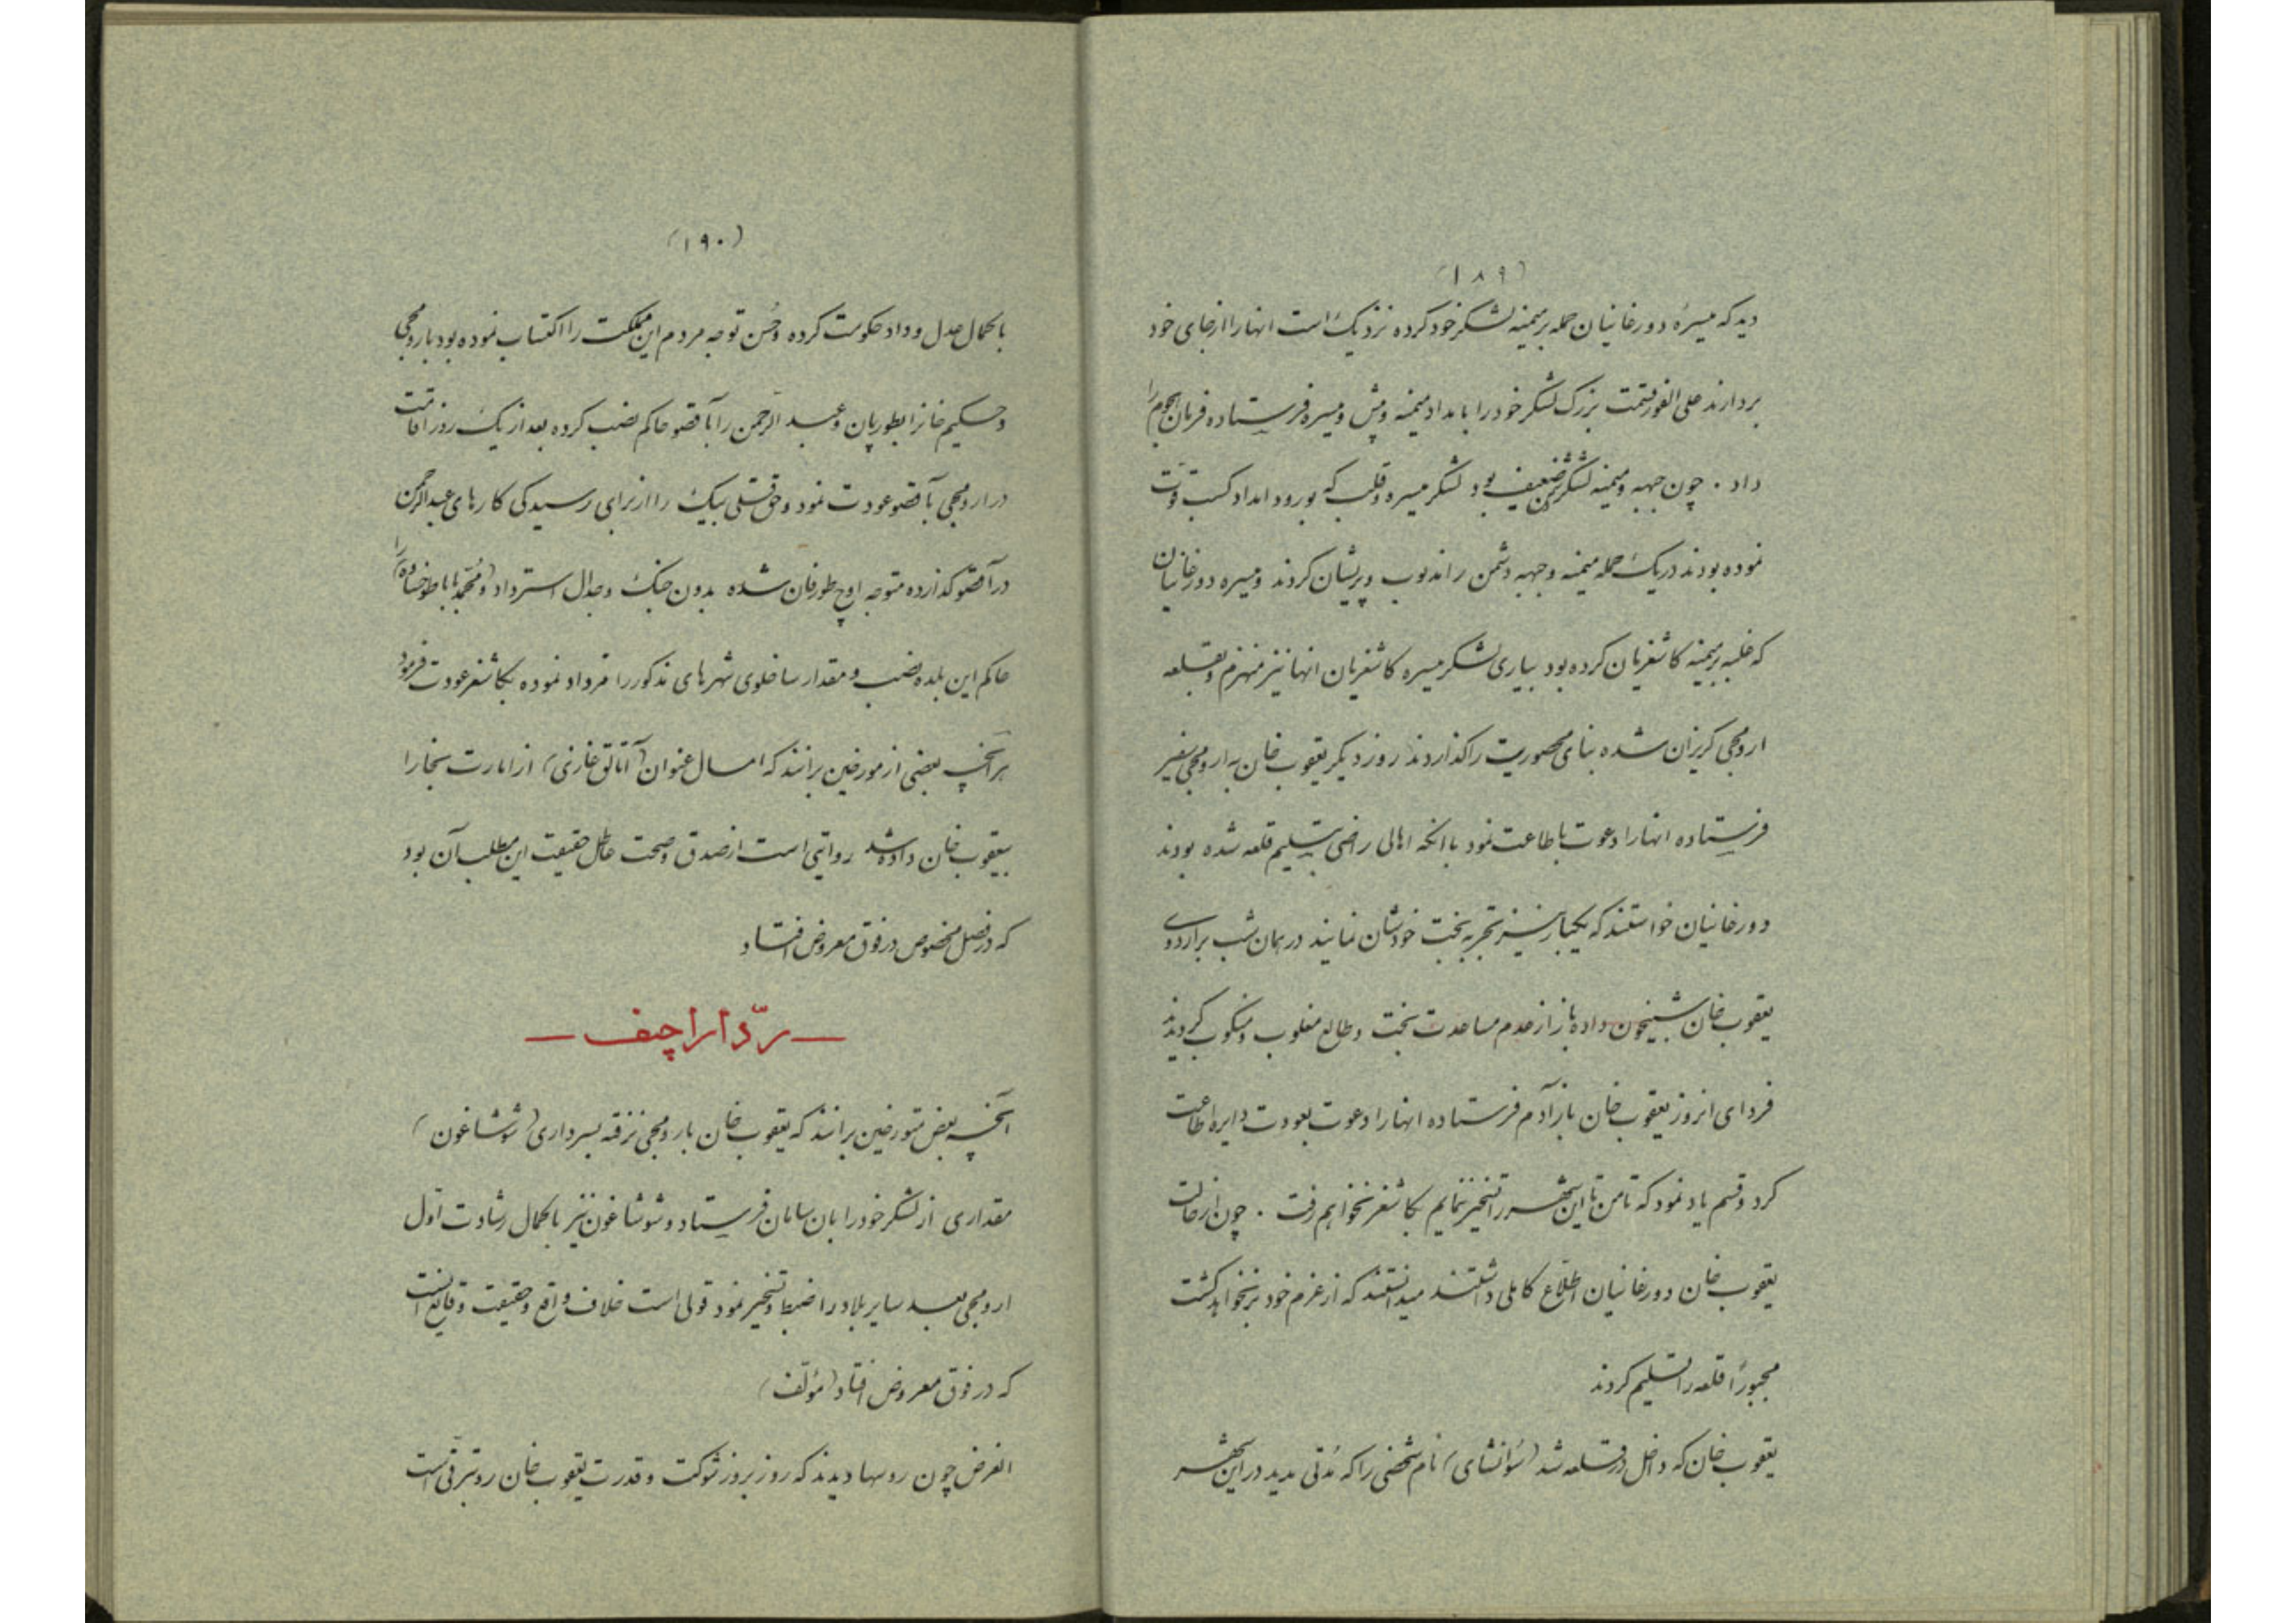 (۱۸۹)
دید که میسرهٔ دورغانیان حمله بر میمنه لشکر خود کرده نزدیک است انها را از جای خود
بردارند علی الفور قسمت بزرک لشکر خود را بامداد میمنه و پیش و میسره فرستاده فرمان هجوم را
داد . چون جبهه و میمنه لشکر دشمن ضعیف بود لشکر میسره و قلب که بورود امداد کسب قوّت
نموده بودند در یک حمله میمنه و جبهه دشمن را مغلوب و پریشان کردند و میسره دورغانیان
که غلبه بر میمنه کاشغریان کرده بود بیاری لشکر میسره کاشغریان انها نیز منهزم و بقلعه
ارومچی کریزان شده بنای محصوریت را کذاردند روز دیکر یعقوب خان به ارومچی سفیر
فرستاده انها را دعوت باطاعت نمود با انکه اهالی راضی بتسلیم قلعه شده بودند
دورغانیان خواستند که یکبار نیز تجربه بخت خودشان نمایند در همان شب بر اردوی
یعقوب خان شبیخون داده باز از عدم مساعدت بخت و طالع مغلوب و منکوب کردیدند
فردای انروز یعقوب خان باز آدم فرستاده انها را دعوت بعودت دایره اطاعت
کرد و قسم یاد نمود که تا من تا این شهر را تسخیر ننمایم بکاشغر نخواهم رفت . چون از حالت
یعقوب خان دورغانیان اطّلاع کاملی داشتند میدانستند که از عزم خود بر نخواهد کشت
مجبوراً قلعه را تسلیم کردند
یعقوب خان که داخل در قلعه شد (سُوانشای) نام شخصی را که مُدّتی مدید در این شهر
(۱۹۰)
با کمال عدل و داد حکومت کرده و حُسن توجه مردم این مملکت را اکتساب نموده بود بارومچی
و حکیم خانرا بطورپان و عبد الرحمن را بآقصو حاکم نصب کرده بعد از یک روز اقامت
در ارومچی بآقصو عودت نمود و حق قلی بیک را از برای رسیدکی کارهای عبد الرحمن
در آقصو کذارده متوجه اوچ طورفان شده بدون جنک و جدال استرداد (و مُحمّد بابا طوخساده) را
حاکم این بلده نصب و مقدار ساخلوی شهرهای مذکور را قرداد نموده بکاشغر عودت فرمود
هر آنچه بعضی از مورخین برانند که امسال عنوان (آتالق غازی) از امارت بخارا
بیعقوب خان داده شد روایتی است از صدق و صحت عاطل حقیقت این مطلب آن بود
که در فصل مخصوص در فوق معروض افتاد
— ردّ اراچیف —
آنچه بعض متورخین برانند که یعقوب خان بارومچی نرفته بسرداری (شوشاغون)
مقداری از لشکر خود را بان سامان فرستاد و شوشاغون نیز با کمال رشادت اوّل
ارومچی بعد سایر بلاد را ضبط و تسخیر نمود قولی است خلاف واقع و حقیقت وقایع انست
که در فوق معروض افتاد (مؤلّف)
الغرض چون روسها دیدند که روز بروز شوکت و قدرت یعقوب خان رو بترقی است